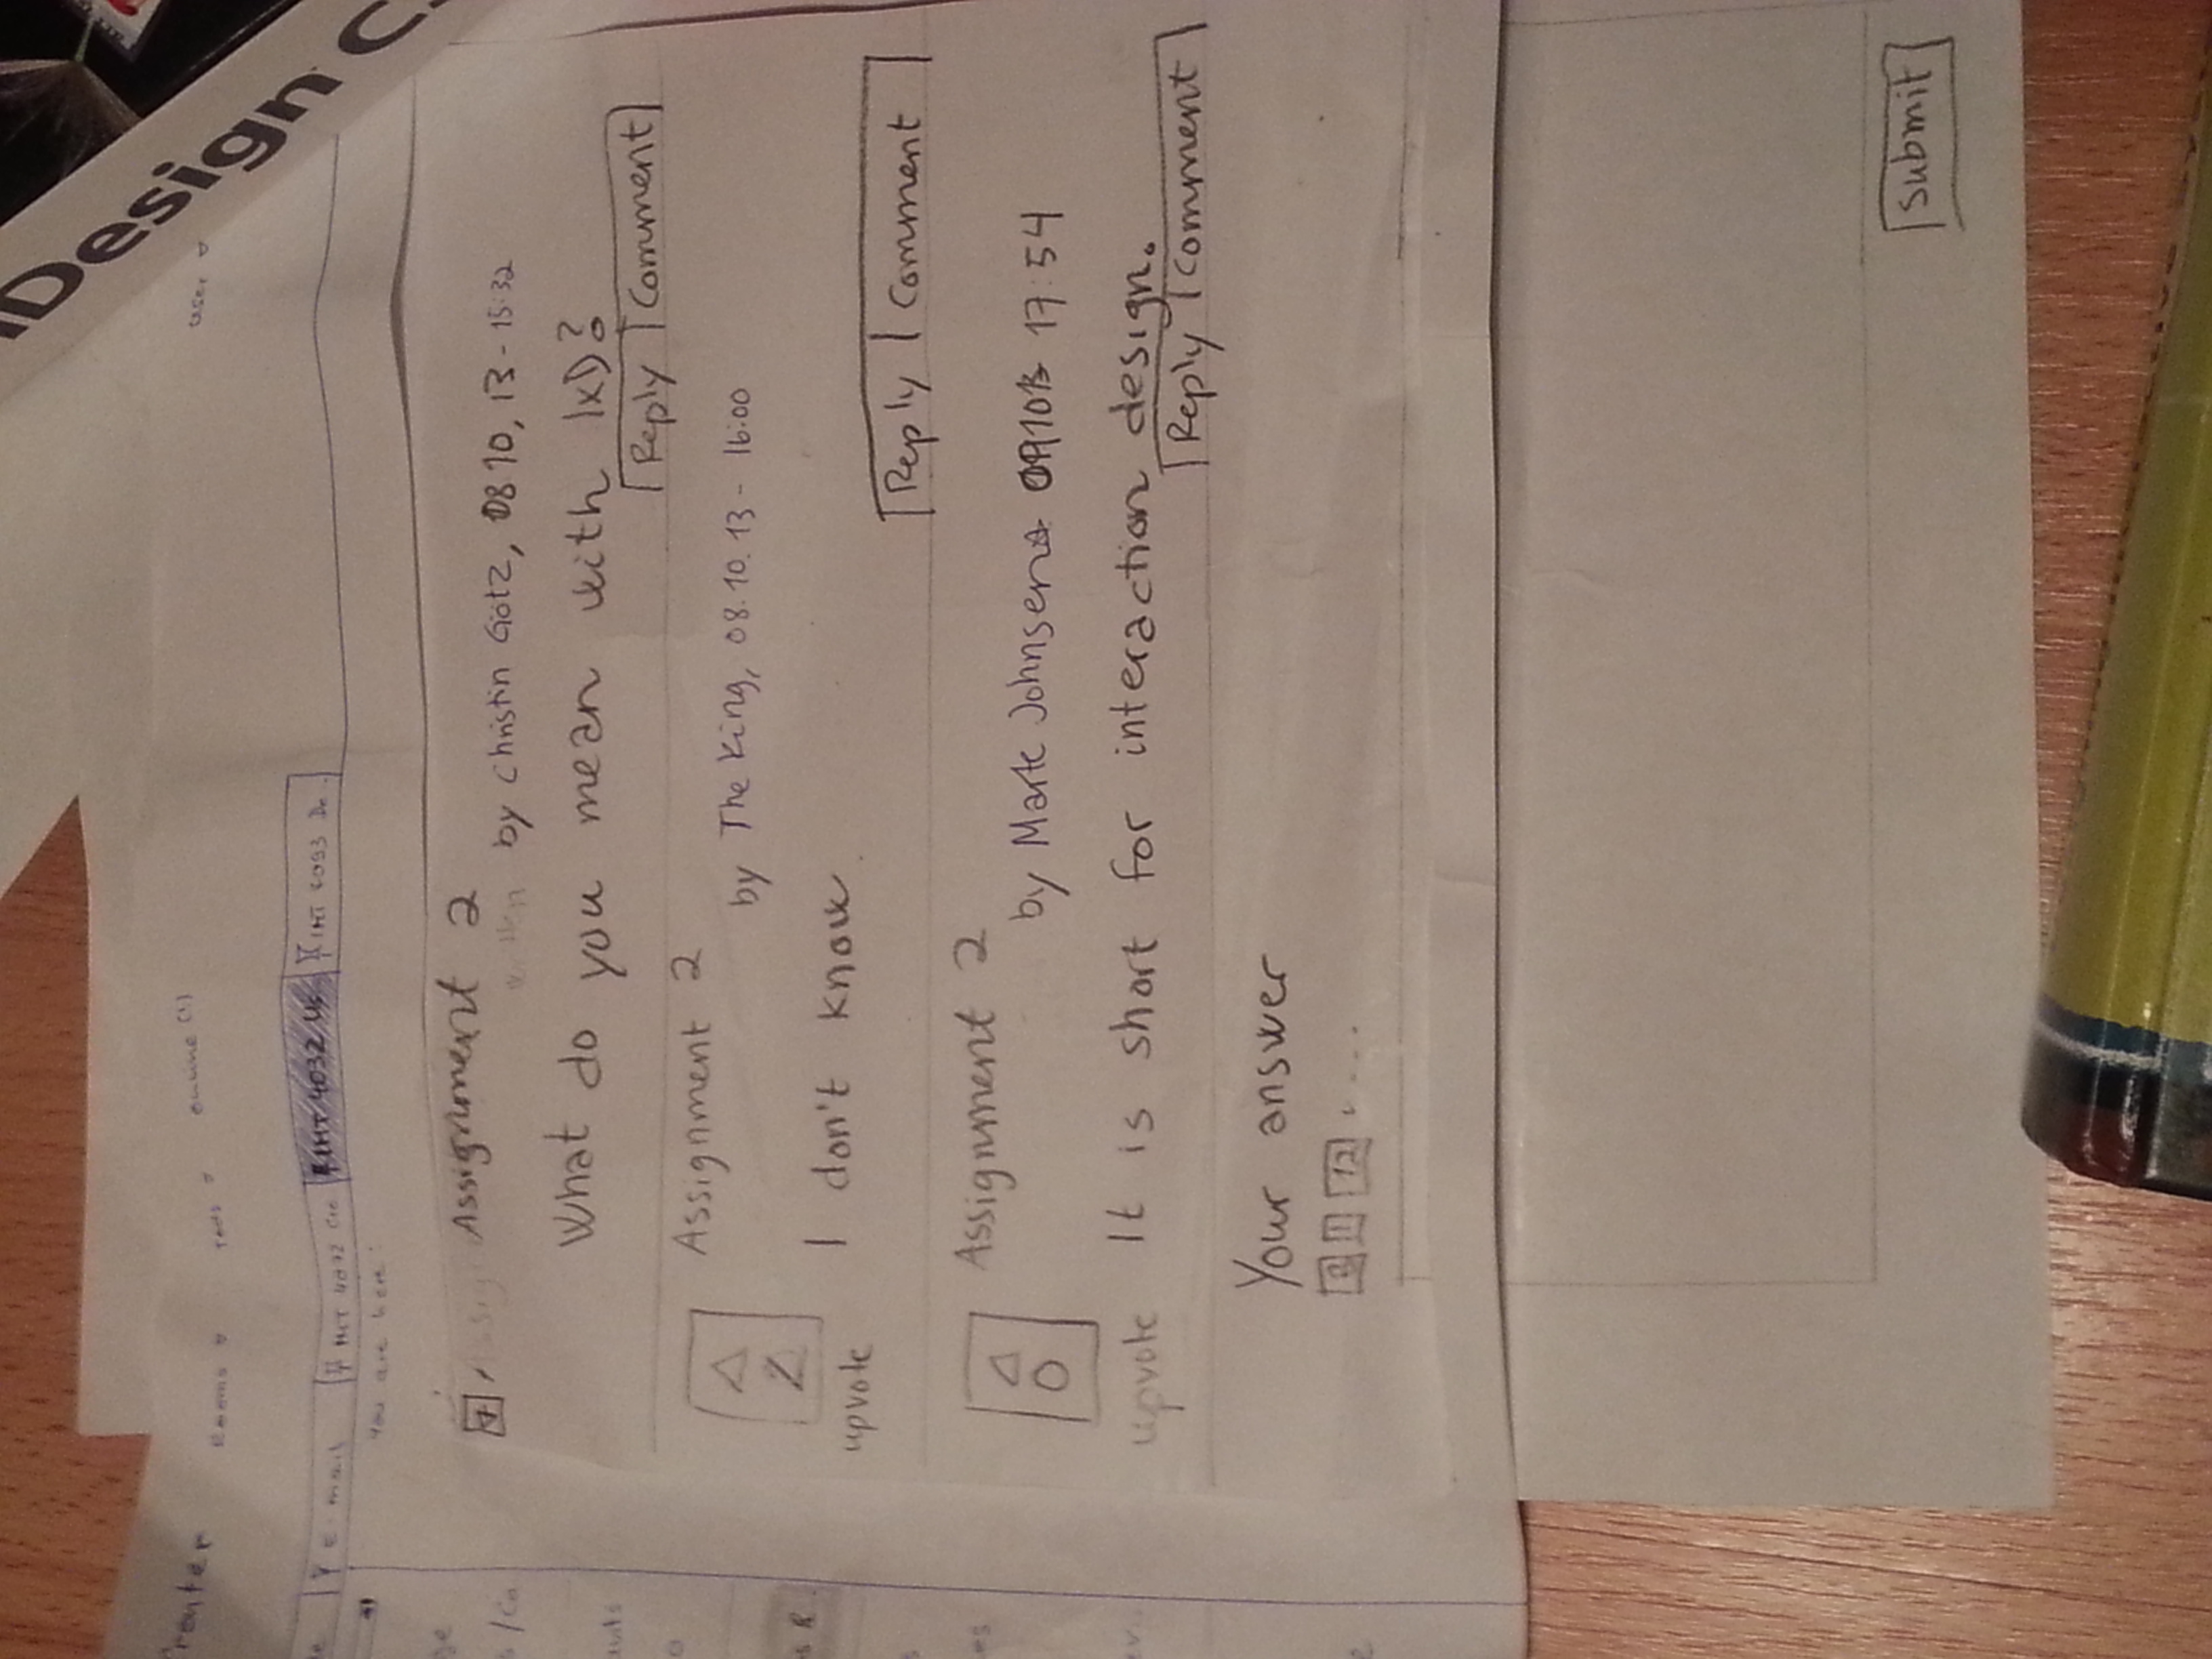 Design
Rooms
online (1)
user
E-mail
IMT 4072
IMT 4032 Us
IMT
De.
You are here:
Assignment 2
by Christin Götz, 08 10, 13 - 15:32
What do you mean with IxD?
Reply Comment
Assignment 2
by The King, 08.10.13 - 16:00
2
upvote
I don't know
Reply Comment
Assignment 2
by Mark Johnsen 17:54
0
upvote
It is short for interaction design.
Reply Comment
Your answer
submit